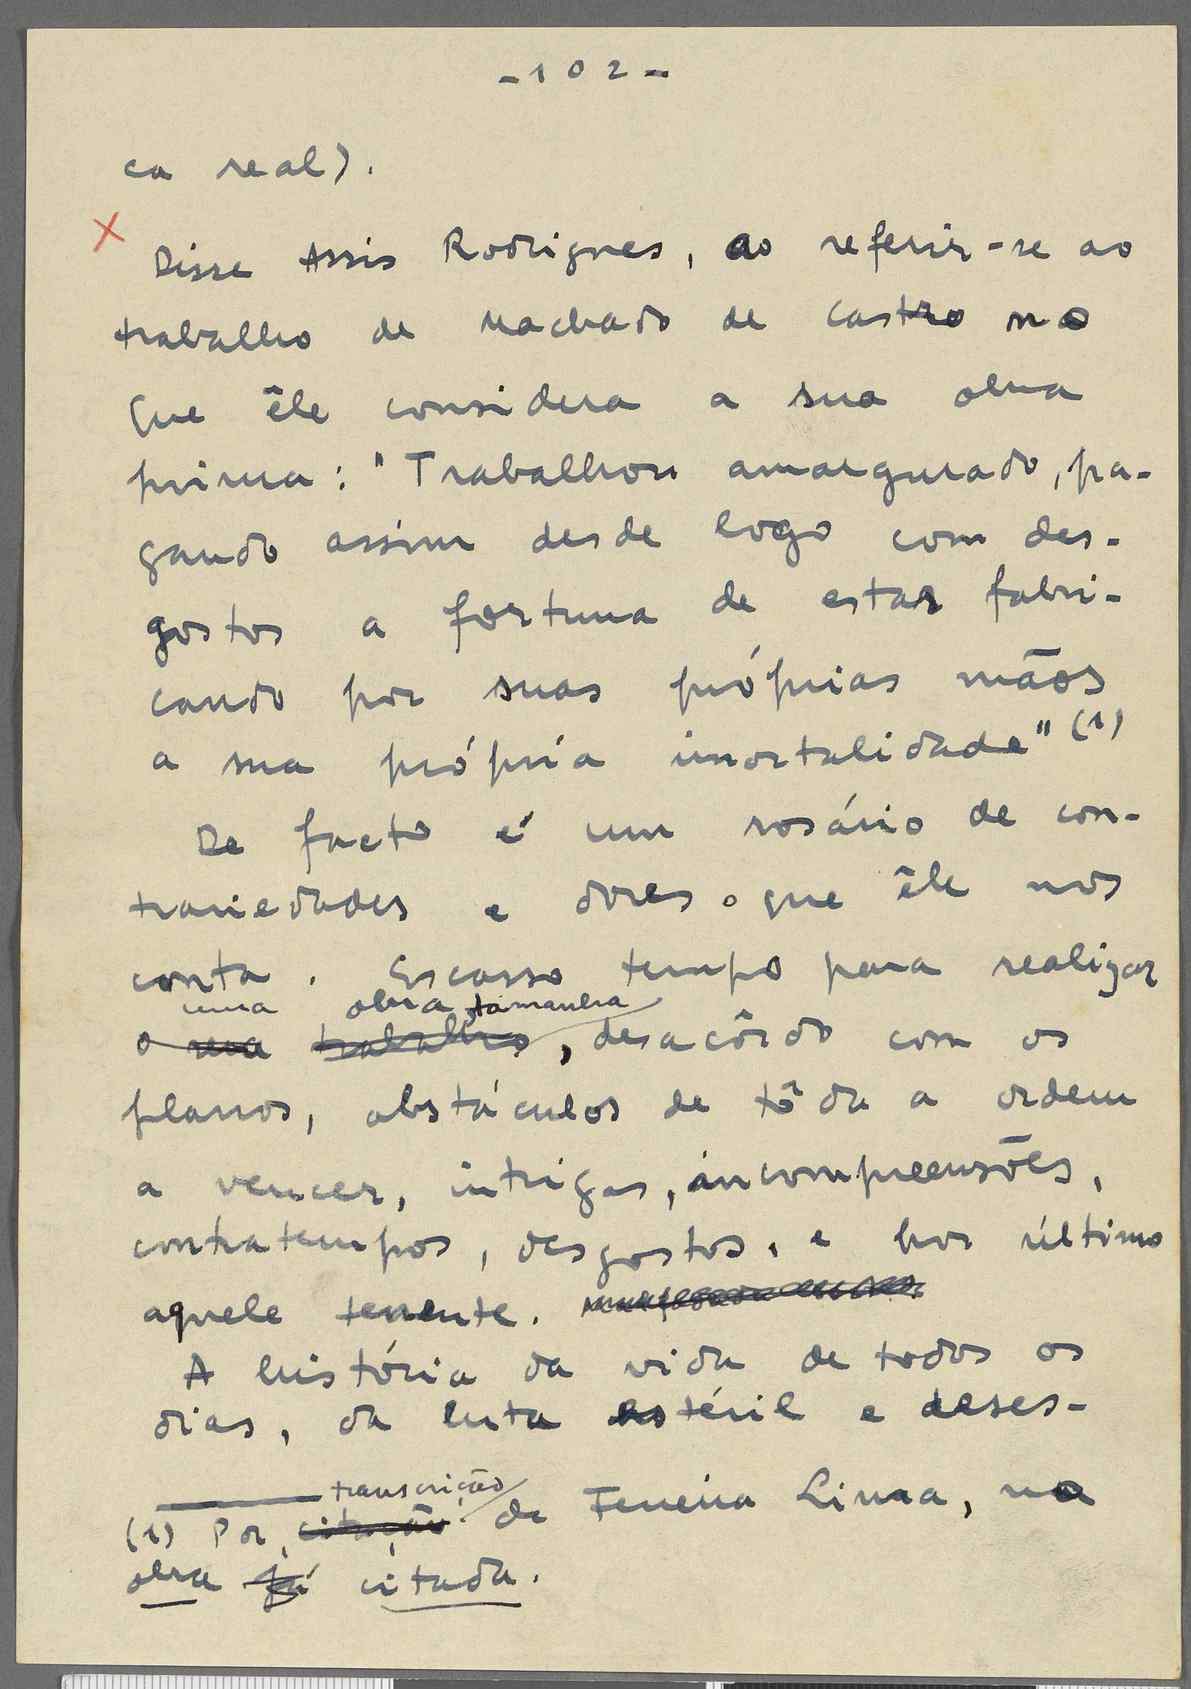 - 1 0 2 -
ca real).
X Disse Assis Rodrigues, ao referir-se ao
trabalho de Machado de Castro no
que êle considera a sua obra
prima: "Trabalhou amargurado, pa-
gando assim desde logo com des-
gostos a fortuna de estar fabri-
cando por suas próprias mãos
a sua própria imortalidade" (1)
De facto é um rosário de con-
trariedades e dores o que êle nos
conta. Escasso tempo para realizar
uma obra tamanha
o trabalho, desacôrdo com os
planos, obstáculos de tôda a ordem
a vencer, intrigas, incompreensões,
contratempos, desgostos, e por último
aquele tenente.
A história da vida de todos os
dias, da luta estéril e deses-
transcrição
(1) Por citação de Ferreira Lima, na
obra já citada.